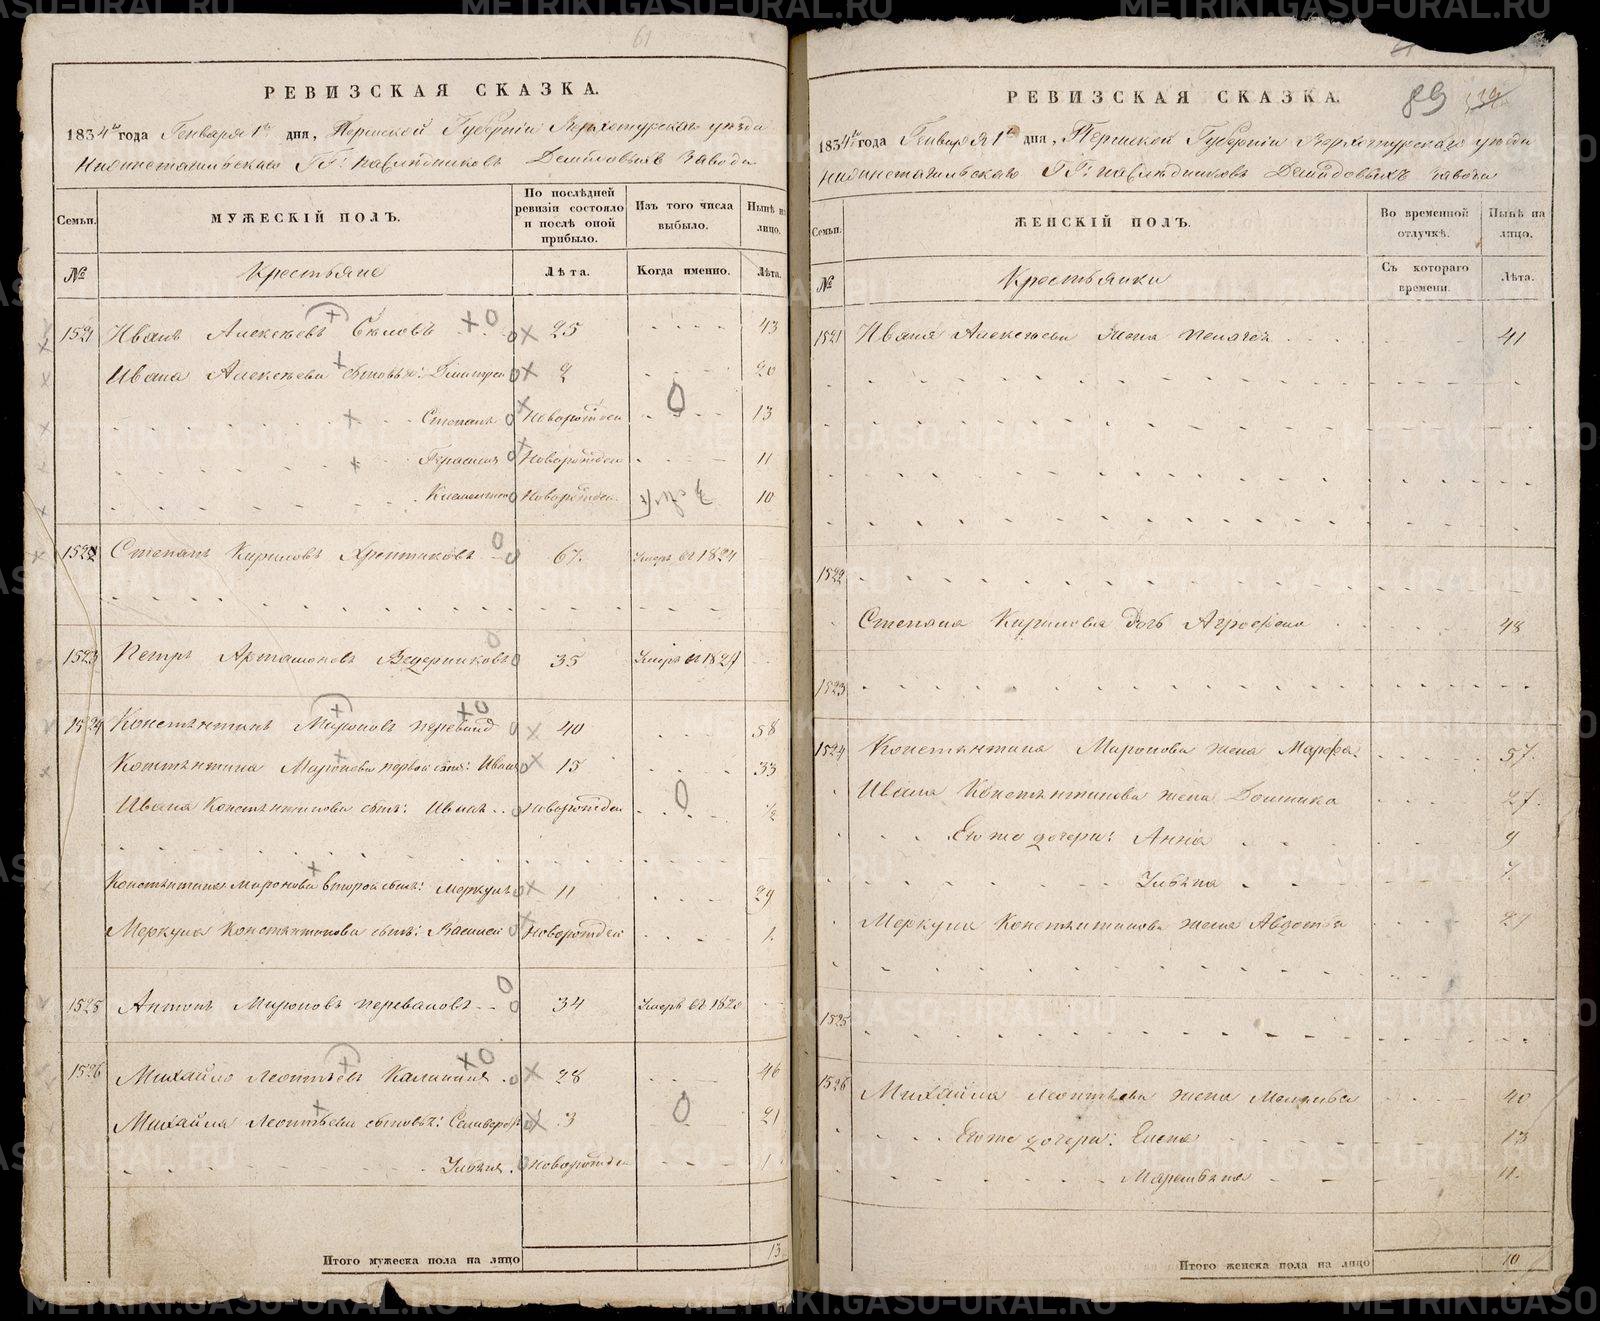 61
РЕВИЗСКАЯ СКАЗКА.
1834го года Генваря 1го дня, Пермской Губернiи Верхотурскаго уезда
Нижнетагильскаго ГГ: наследниковъ Демидовыхъ Завода
Семьи. МУЖЕСКIЙ ПОЛЪ. По послѣдней ревизiи состояло и послѣ оной прибыло. Изъ того числа выбыло. Нынѣ на лицо.
№ Крестьяне Лѣта. Когда именно. Лѣта.
1521 Иванъ Алексѣевъ 25 43
Ивана Алексѣева сыновья: Дмитрей 2 20
Степанъ Новорожден 13
Герасимъ Новорожден 11
Климентей Новорожден. 10
1522 Степанъ Кириловъ Хрептиковъ 67. Умеръ въ 1824
1523 Петръ Артамоновъ Ведерниковъ 35 Умеръ въ 1827
1524 Константинъ Мироновъ перевалов 40 58
Константина Миронова первой сынъ: Иванъ 15 33
Ивана Константинова сынъ: Иванъ Новорожден 1/2
Константина Миронова второй сынъ: Меркулъ 11 29
Меркула Константинова сынъ: Василей Новорожден 1.
1525 Антонъ Мироновъ переваловъ 34 Умеръ въ 1820
1526 Михайло Леонтьевъ Калининъ 28 46
Михайла Леонтьева сыновья: Селиверстъ 3 21
Ульянъ. Новорожден 1
Итого мужеска пола на лицо 13
89
РЕВИЗСКАЯ СКАЗКА.
1834го года Генваря 1го дня, Пермской Губернiи Верхотурскаго уезда
Нижнетагильскаго ГГ: наследниковъ Демидовыхъ завода
Семьи. ЖЕНСКIЙ ПОЛЪ. Во временной отлучкѣ. Нынѣ на лицо.
№ Крестьянки Съ котораго времени. Лѣта.
1521 Ивана Алексѣева жена Пелагея 41
1522
Степана Кирилова дочь Агрофена 48
1523
1524 Константина Миронова жена Марфа 57.
Ивана Константинова жена Домника 27.
Его же дочери: Анна 9
Ульяна 7.
Меркула Константинова жена Авдотья 27
1525
1526 Михайла Леонтьева жена Меланья 40
Его же дочери: Елена 13
Маремьяна 11.
Итого женска пола на лицо 10
METRIKI.GASO-URAL.RU